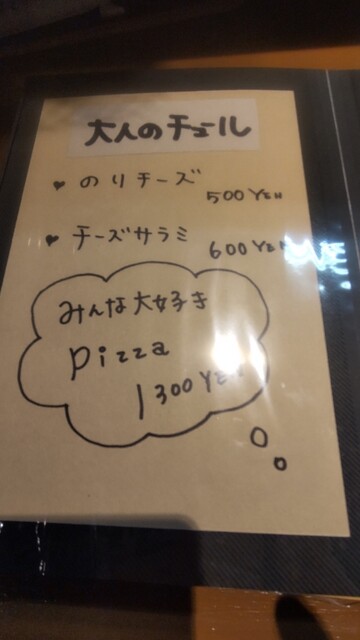 大人のチュール
♥ のりチーズ 500 YEN
♥ チーズサラミ 600 YEN
みんな大好き
Pizza
1300 YEN